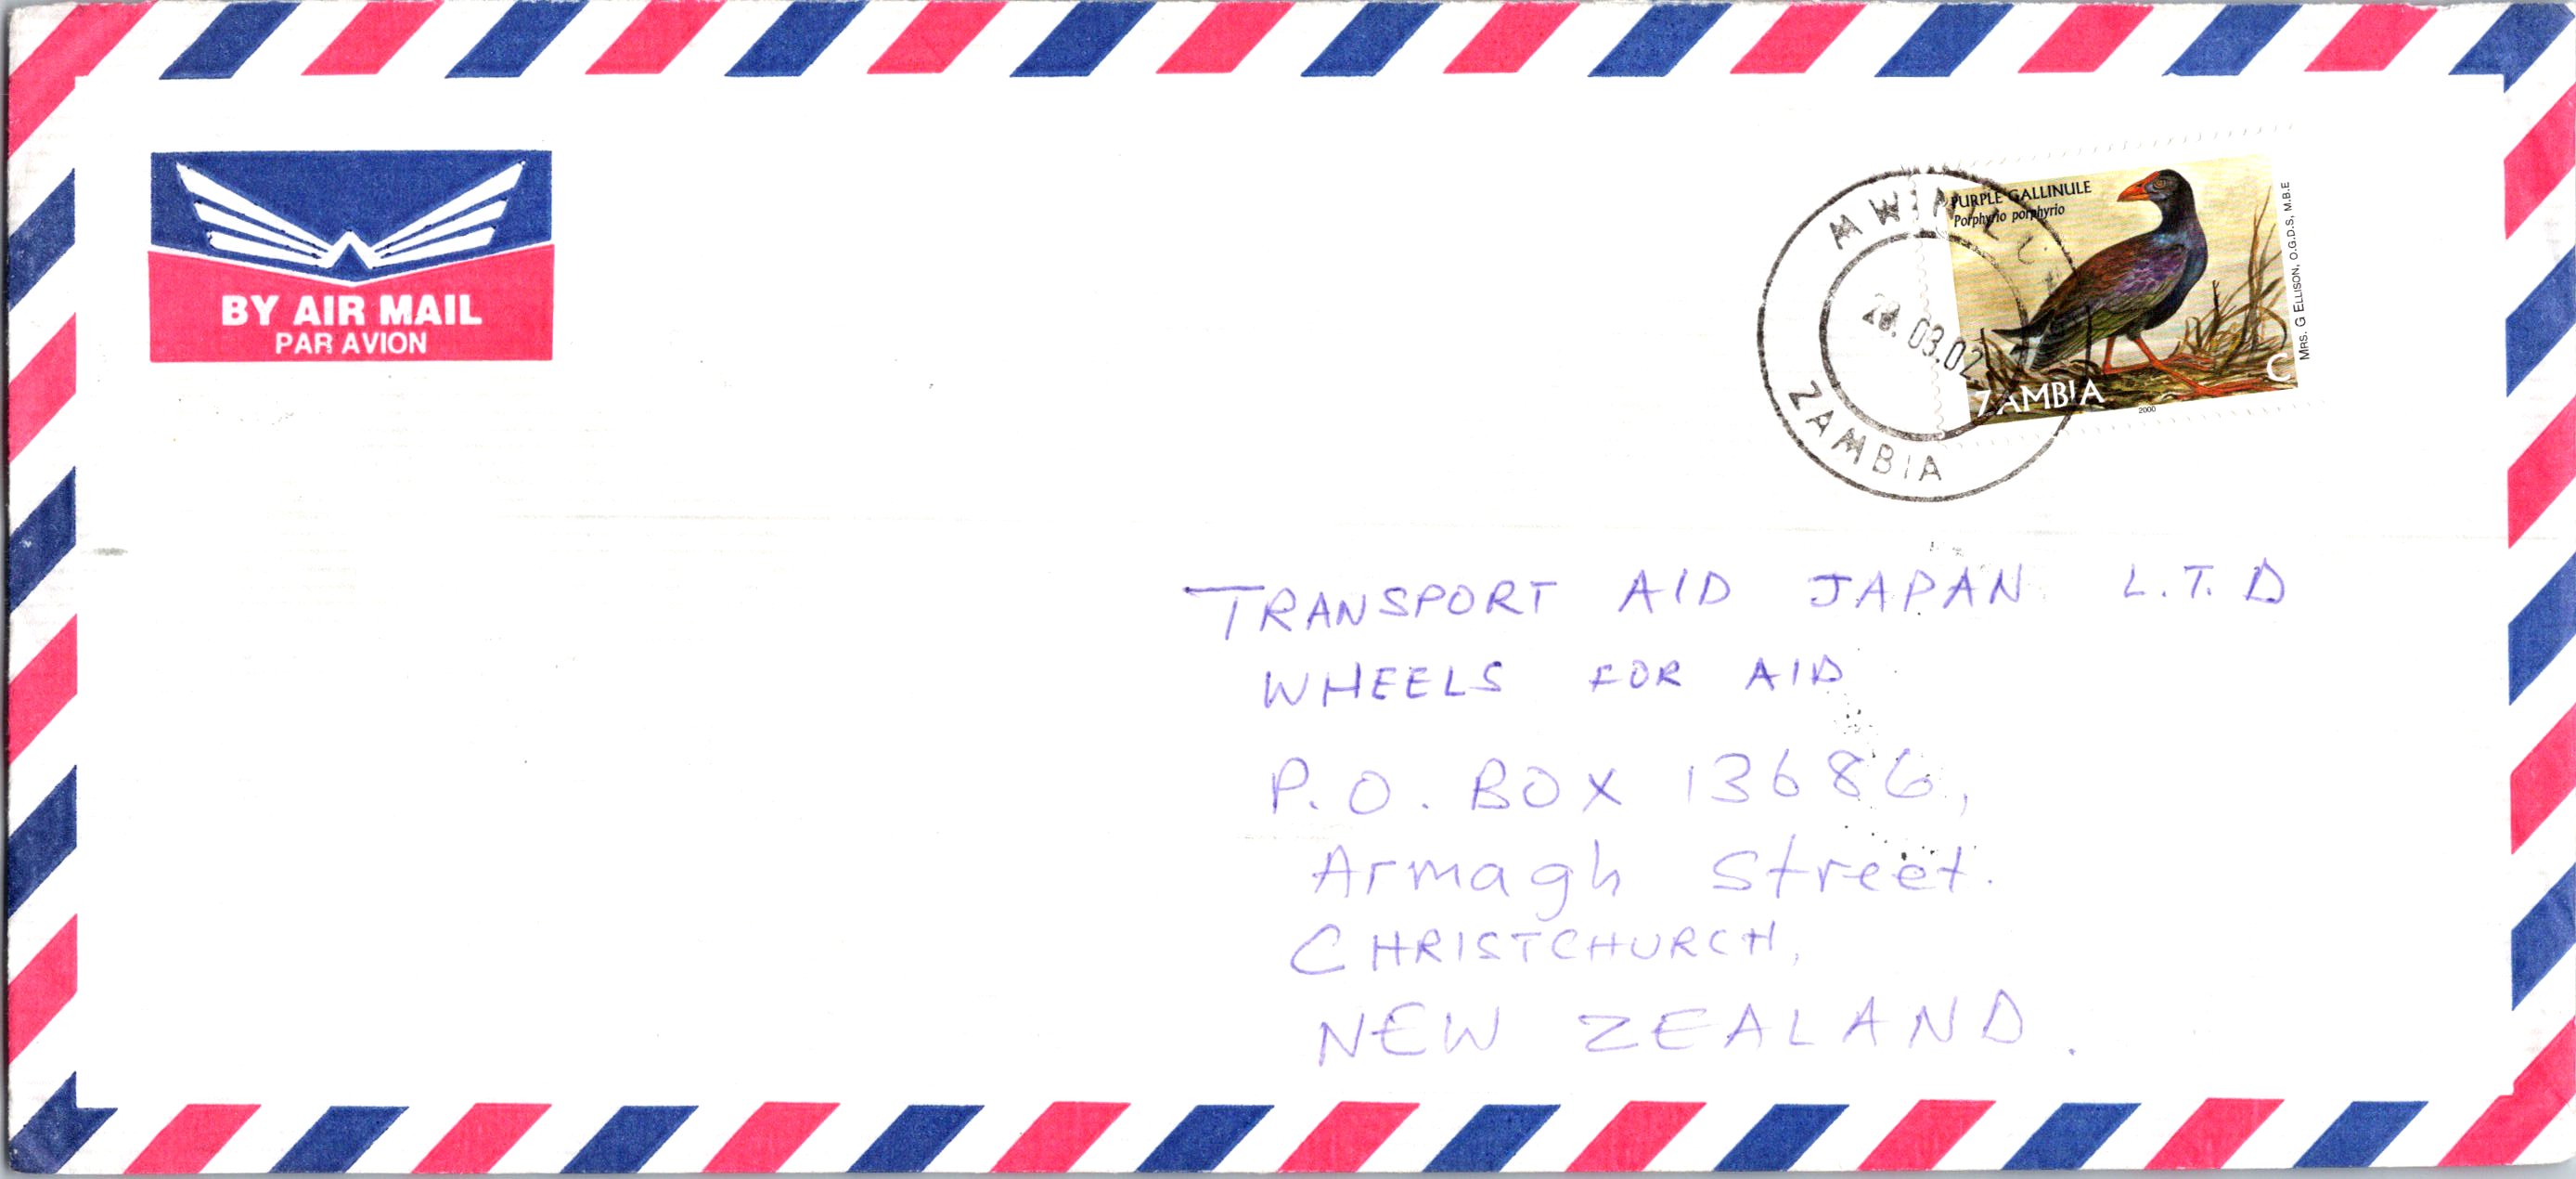 BY AIR MAIL
PAR AVION
PURPLE GALLINULE
Porphyrio porphyrio
MRS. G ELLISON, O.G.D.S, M.B.E
ZAMBIA
C
2000
03.02
ZAMBIA
TRANSPORT AID JAPAN L.T.D
WHEELS FOR AID
P.O. BOX 13686,
Armagh Street.
CHRISTCHURCH,
NEW ZEALAND.